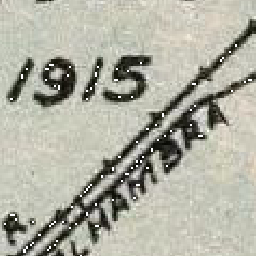 1915
R.
ALHAMBRA